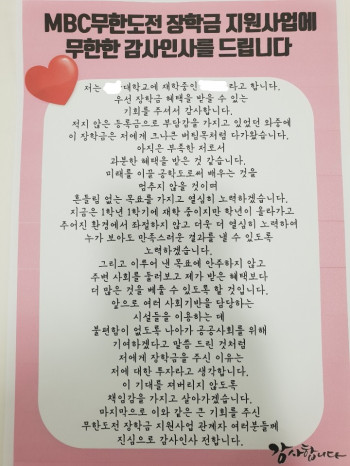 MBC무한도전 장학금 지원사업에
무한한 감사인사를 드립니다
저는 대학교에 재학중인 라고 합니다.
우선 장학금 혜택을 받을 수 있는
기회를 주셔서 감사합니다.
적지 않은 등록금으로 부담감을 가지고 있었던 와중에
이 장학금은 저에게 크나큰 버팀목처럼 다가왔습니다.
아직은 부족한 저로서
과분한 혜택을 받은 것 같습니다.
미래를 이끌 공학도로써 배우는 것을
멈추지 않을 것이며
흔들림 없는 목표를 가지고 열심히 노력하겠습니다.
지금은 1학년 1학기에 재학 중이지만 학년이 올라가고
주어진 환경에서 좌절하지 않고 더욱 더 열심히 노력하여
누가 보아도 만족스러운 결과를 낼 수 있도록
노력하겠습니다.
그리고 이루어 낸 목표에 안주하지 않고
주변 사회를 둘러보고 제가 받은 혜택보다
더 많은 것을 베풀 수 있도록 할 것입니다.
앞으로 여러 사회기반을 담당하는
시설들을 이용하는 데
불편함이 없도록 나아가 공공사회를 위해
기여하겠다고 말씀 드린 것처럼
저에게 장학금을 주신 이유는
저에 대한 투자라고 생각합니다.
이 기대를 져버리지 않도록
책임감을 가지고 살아가겠습니다.
마지막으로 이와 같은 큰 기회를 주신
무한도전 장학금 지원사업 관계자 여러분들께
진심으로 감사인사 전합니다.
감사합니다